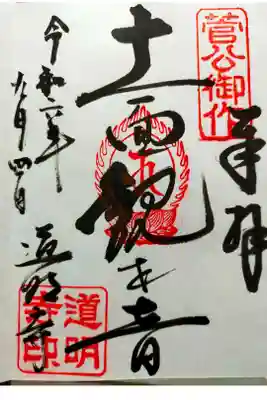 奉拝
菅公御作
十一面観世音
道明寺印
道明寺
令和六年
九月四日